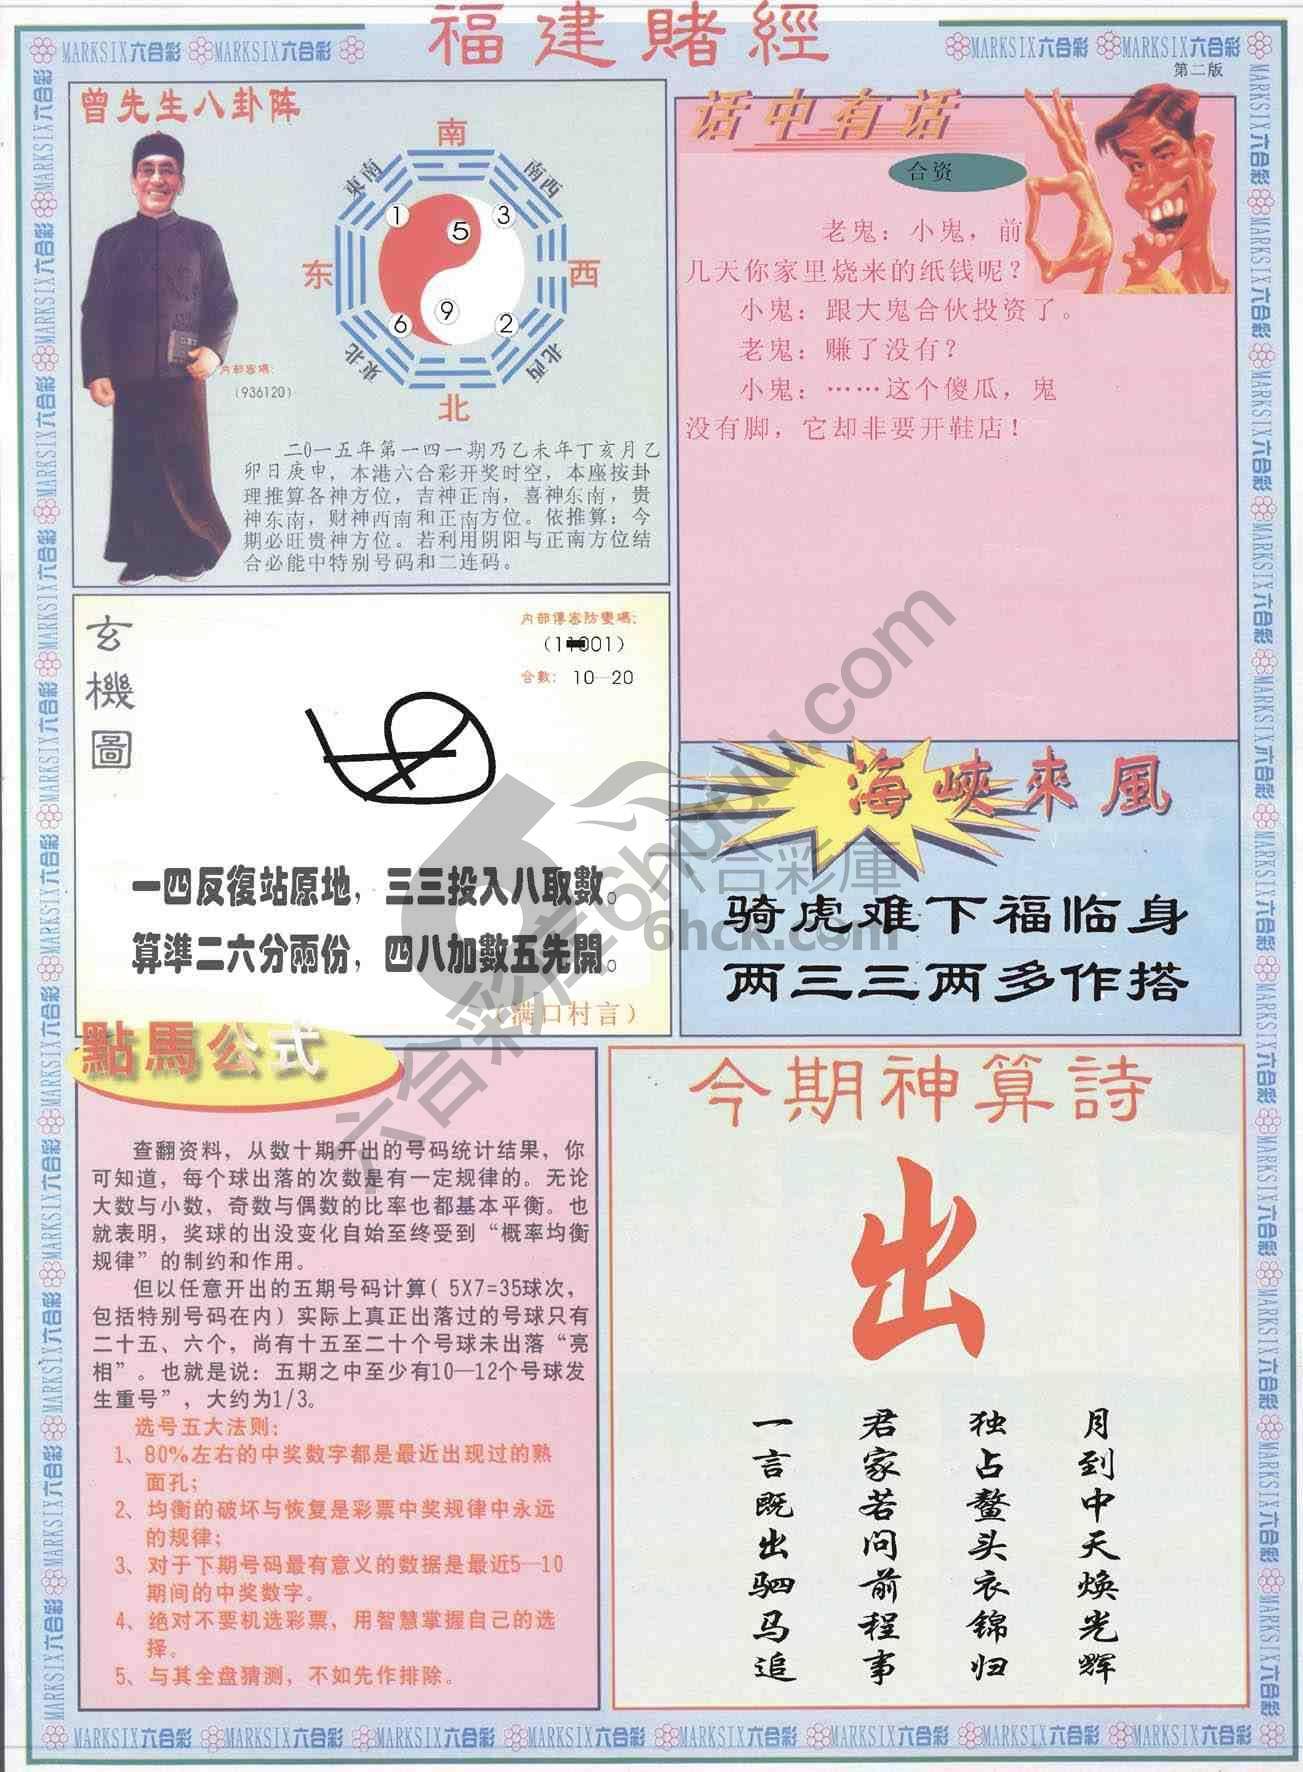 福建賭經
MARKSIX六合彩 MARKSIX六合彩
MARKSIX六合彩 MARKSIX六合彩
第二版
曾先生八卦阵
南
東南
南西
1
5
3
东
西
6
9
2
東北
北西
北
内部密碼：
（936120）
二0一五年第一四一期乃乙未年丁亥月乙
卯日庚申，本港六合彩开奖时空，本座按卦
理推算各神方位，吉神正南，喜神东南，贵
神东南，财神西南和正南方位。依推算：今
期必旺贵神方位。若利用阴阳与正南方位结
合必能中特别号码和二连码。
话中有话
合资
老鬼：小鬼，前
几天你家里烧来的纸钱呢？
小鬼：跟大鬼合伙投资了。
老鬼：赚了没有？
小鬼：……这个傻瓜，鬼
没有脚，它却非要开鞋店！
玄機圖
内部傳密防變碼：
合數： 10—20
一四反復站原地，三三投入八取數。
算準二六分兩份，四八加數五先開。
（满口村言）
海峽來風
骑虎难下福临身
两三三两多作搭
六合彩庫
6hck.com
點馬公式
查翻资料，从数十期开出的号码统计结果，你
可知道，每个球出落的次数是有一定规律的。无论
大数与小数，奇数与偶数的比率也都基本平衡。也
就表明，奖球的出没变化自始至终受到“概率均衡
规律”的制约和作用。
但以任意开出的五期号码计算( 5X7=35球次，
包括特别号码在内）实际上真正出落过的号球只有
二十五、六个，尚有十五至二十个号球未出落“亮
相”。也就是说：五期之中至少有10—12个号球发
生重号”，大约为1/3。
选号五大法则：
1、80%左右的中奖数字都是最近出现过的熟
面孔；
2、均衡的破坏与恢复是彩票中奖规律中永远
的规律；
3、对于下期号码最有意义的数据是最近5—10
期间的中奖数字。
4、绝对不要机选彩票，用智慧掌握自己的选
择。
5、与其全盘猜测，不如先作排除。
今期神算詩
出
月到中天焕光辉
独占鳌头衣锦归
君家若问前程事
一言既出驷马追
MARKSIX六合彩 MARKSIX六合彩 MARKSIX六合彩 MARKSIX六合彩 MARKSIX六合彩 MARKSIX六合彩 MARKSIX六合彩 MARKSIX六合彩